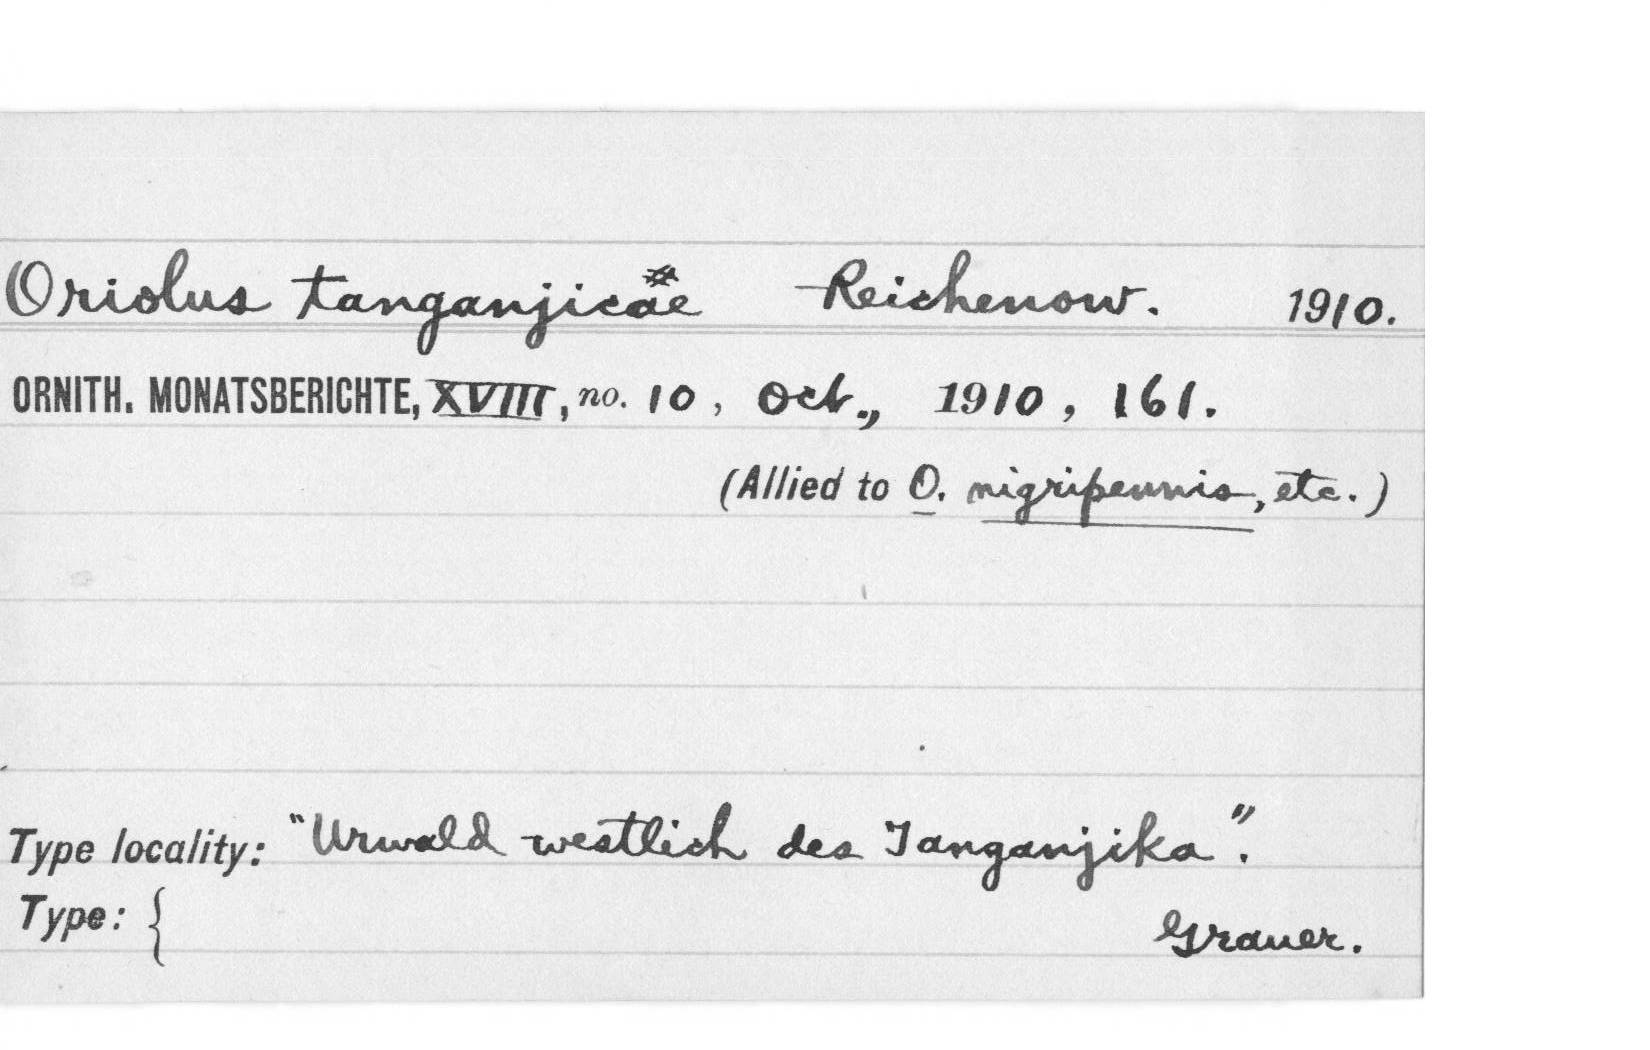 Oriolus tanganjicae Reichenow. 1910.
ORNITH. MONATSBERICHTE, XVIII, no. 10, Oct., 1910, 161.
(Allied to O. nigripennis, etc.)
Type locality: "Urwald westlich des Tanganjika".
Type: {
Grauer.